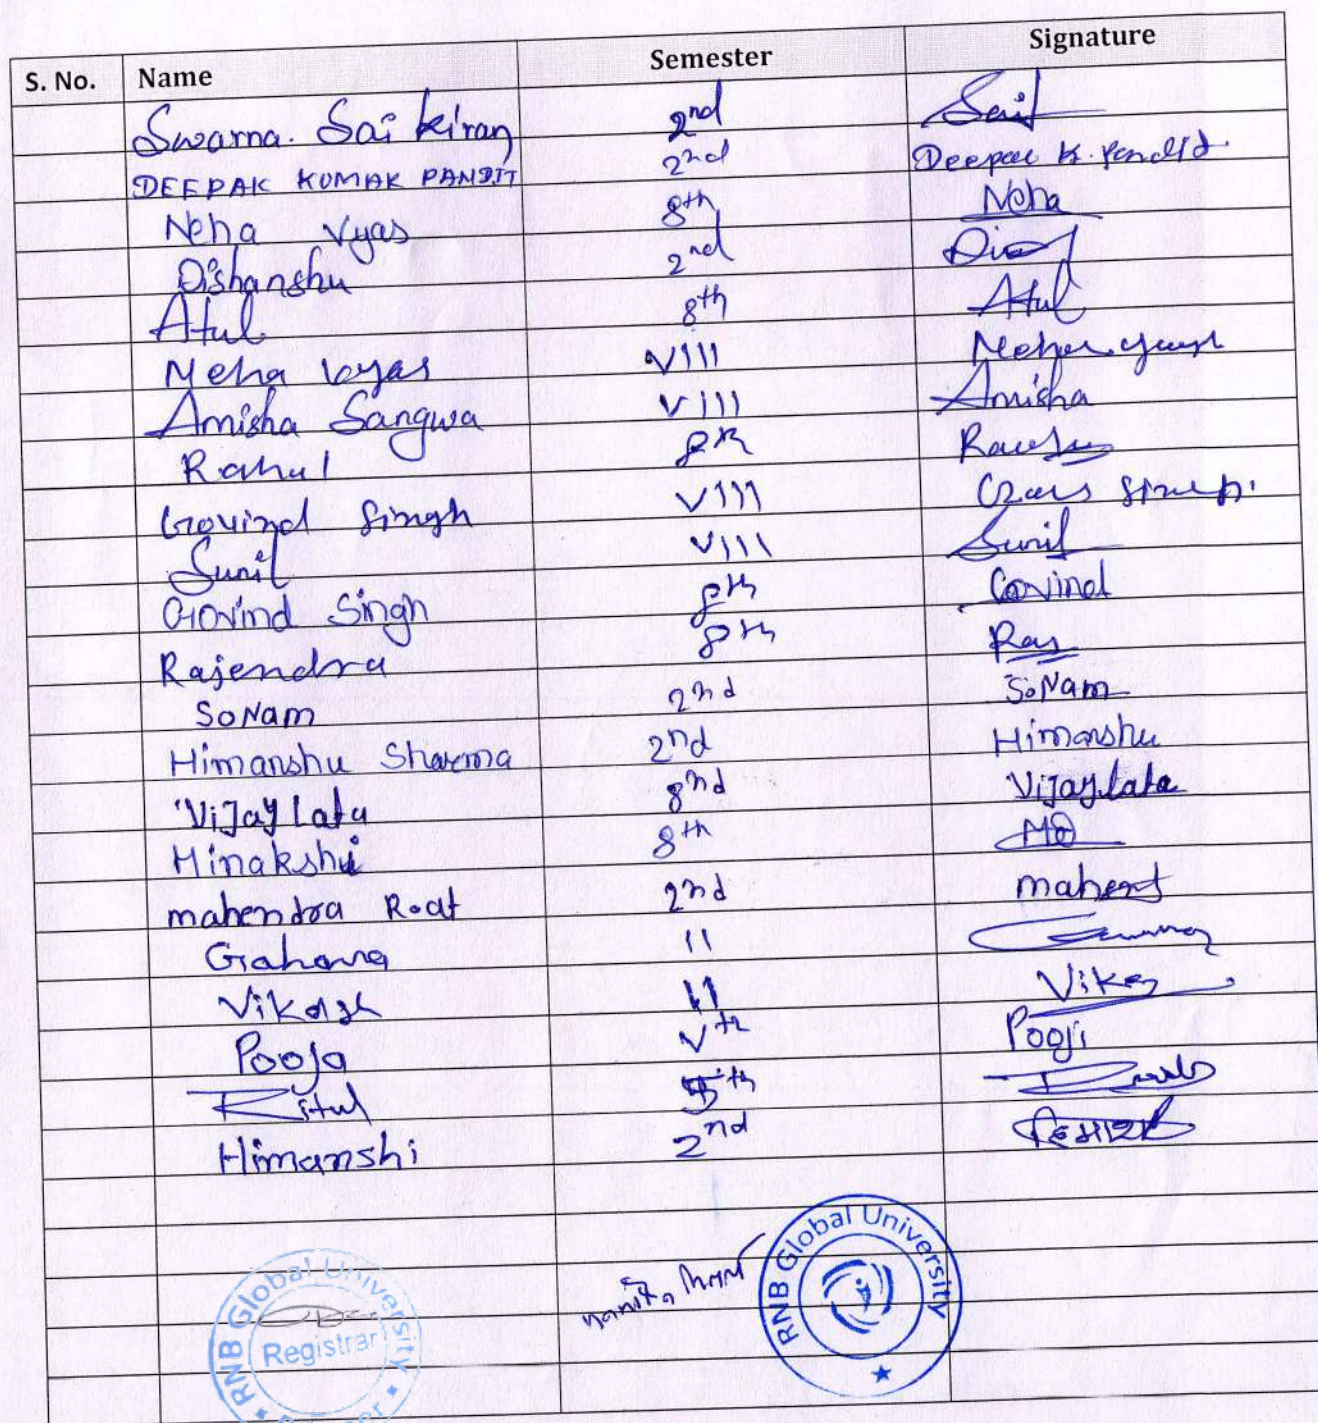 S. No. Name Semester Signature
Swarna. Sai kiran 2nd Sai
DEEPAK KUMAR PANDIT 2nd Deepak K. Pandit
Neha Vyas 8th Neha
Dishanshu 2nd
Atul 8th Atul
Neha Vyas VIII
Amisha Sangwa VIII Amisha
Rahul 8th
Govind Singh VIII
Sunil VIII Sunil
Govind Singh 8th Govind
Rajendra 8th Raj
SoNam 2nd SoNam
Himanshu Sharma 2nd Himanshu
Vijaylata 8nd Vijaylata
Minakshi 8th
mahendra 2nd
II
Vikash II Vikas
Pooja Vth Pooji
Ritul 5th
Himanshi 2nd
RNB Global University
Registrar
RNB Global University